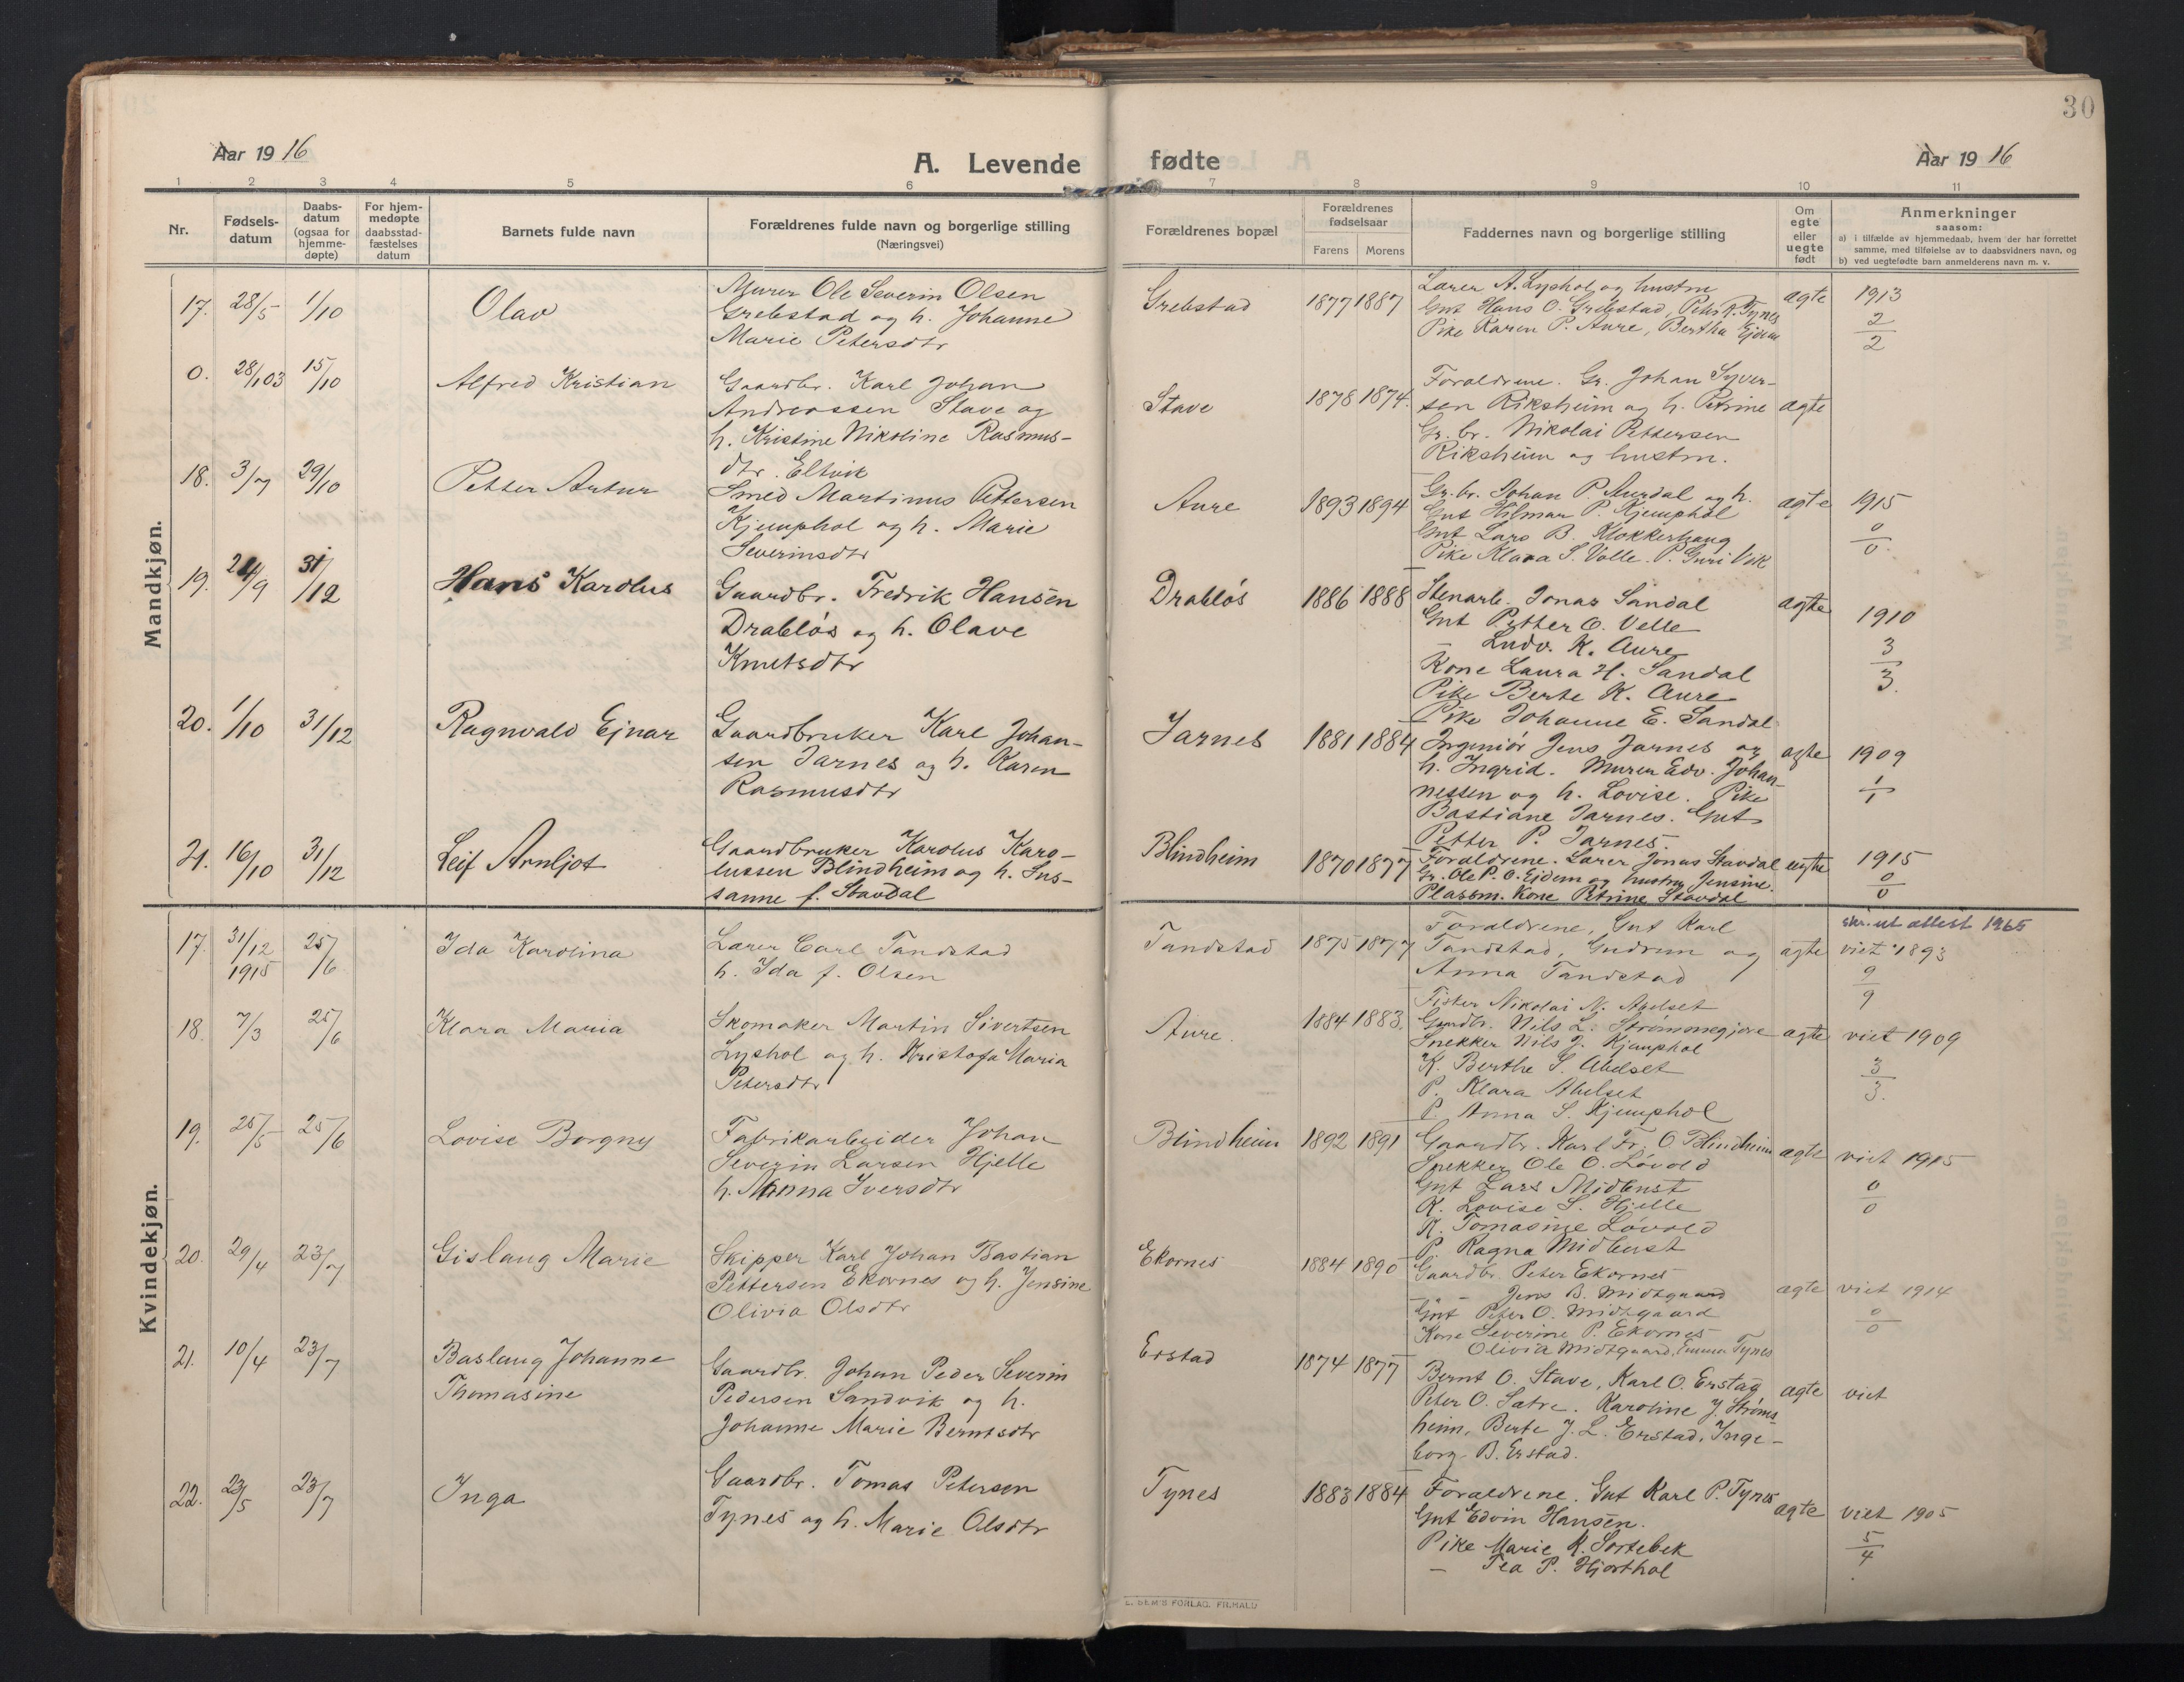 30
Aar 1916
A. Levende fødte
Aar 1916
1 2 3 4 5 6 7 8 9 10 11
Nr.
Fødsels-
datum
Daabs-
datum
(ogsaa for
hjemme-
døpte)
For hjem-
medøpte
daabsstad-
fæstelses
datum
Barnets fulde navn
Forældrenes fulde navn og borgerlige stilling
(Næringsvei)
Forældrenes bopæl
Forældrenes
fødselsaar
Farens Morens
Faddernes navn og borgerlige stilling
Om
egte
eller
uegte
født
Anmerkninger
saasom:
a) i tilfælde av hjemmedaab, hvem der har forrettet
samme, med tilføielse av to daabsvidners navn, og
b) ved uegtefødte barn anmelderens navn m. v.
Mandkjøn.
17. 28/5 1/10 Olav
Murer Ole Severin Olsen
Grebstad og h. Johanne
Marie Petersdtr
Grebstad 1877 1887
Lærer A. Lyshol og hustru
Gut Hans O. Grebstad, Peter R. Tynes
Pike Karen P. Aure, Bertha Ejdem
ægte 1913
2
2
0. 28/1 03 15/10 Alfred Kristian
Gaardbr. Karl Johan
Andreassen Stave og
h. Kristine Nikoline Rasmus-
dtr. Eltvik
Stave 1878 1874.
Forældrene. Gr. Johan Syver-
sen Riksheim og h. Petrine
Gr. br. Nikolai Pettersen
Riksheim og hustru.
ægte
18. 3/7 29/10 Petter Artur
Smed Martinus Pettersen
Kjemphol og h. Marie
Severinsdtr
Aure 1893 1894
Gr. br. Johan P. Aurdal og h.
Gut Hilmar P. Kjemphol
Gut Lars B. Klokkerhaug
Pike Klara S. Velle. P. Guri Vik
ægte 1915
0
0.
19. 24/9 31/12 Hans Karolus
Gaardbr. Fredrik Hansen
Drabløs og h. Olave
Knutsdtr
Drabløs 1886 1888
Stenarb. Jonas Sandal
Gut Petter O. Velle
— Ludv. K. Aure
Kone Laura H. Sandal
Pike Berte K. Aure
Pike Johanne E. Sandal
ægte 1910
3
3.
20. 1/10 31/12 Ragnvald Ejnar
Gaardbruker Karl Johan-
sen Jarnes og h. Karen
Rasmusdtr
Jarnes 1881 1884
Ingeniør Jens Jarnes og
h. Ingrid. Murer Edv. Johan-
nessen og h. Lovise. Pike
Bastiane Jarnes. Gut
Petter P. Jarnes.
ægte 1909
1
1
21. 16/10 31/12 Leif Arnljot
Gaardbruker Karolus Karo-
lussen Blindheim og h. Sus-
sanne f. Stavdal
Blindheim 1870 1877
Forældrene. Lærer Jonas Stavdal
Gr. Ole P. O. Ejdem og hustru Jensine.
Plassm. Kone Petrine Stavdal
ægte 1915
0
0
Kvindekjøn.
skr. ut attest 1965
17. 31/12 1915 25/6 Ida Karolina
Lærer Carl Tandstad
h. Ida f. Olsen
Tandstad 1875 1877
Forældrene, Gut Karl
Tandstad, Gudrun og
Anna Tandstad
ægte viet 1893
9
9
18. 7/3 25/6 Klara Maria
Skomaker Martin Sivertsen
Lyshol og h. Kristofa Maria
Petersdtr
Aure. 1884 1883.
Fisker Nikolai N. Abelset
Gaardbr. Nils L. Strømmegjære
Snekker Nils J. Kjemphol
K. Berthe S. Abelset
P. Klara Abelset
P. Anna S. Kjemphol
ægte viet 1909
3
3.
19. 25/5 25/6 Lovise Borgny
Fabrikarbeider Johan
Severin Larsen Hjelle
h. Anna Iversdtr
Blindheim 1892 1891
Gaardbr. Karl Fr. O Blindheim
Snekker Ole O. Løvold
Gut Lars Midbust
K. Lovise S. Hjelle
K. Tomasine Løvold
P. Ragna Midbust
ægte viet 1915
0
0
20. 29/4 23/7 Gislaug Marie
Skipper Karl Johan Bastian
Pettersen Ekornes og h. Jensine
Olivia Olsdtr
Ekornes 1884 1890
Gaardbr. Peter Ekornes
— Jens B. Midtgaard
Gut Peter O. Midtgaard
Kone Severine P. Ekornes
Olivia Midtgaard, Emma Tynes
ægte viet 1914
0
0
21. 10/4 23/7 Baslaug Johanne
Thomasine
Gaardbr. Johan Peder Severin
Pedersen Sandvik og h.
Johanne Marie Berntsdtr
Erstad 1874 1877
Bernt O. Stave, Karl O. Erstad,
Peter O. Sætre. Karoline J. Strøms-
heim, Berte J. L. Erstad, Inge-
borg B. Erstad.
ægte viet
22. 23/5 23/7 Inga
Gaardbr. Tomas Petersen
Tynes og h. Marie Olsdtr
Tynes 1883 1884
Forældrene. Gut Karl P. Tynes
Gut Edvin Hansen.
Pike Marie K. Sortebek
— Tea P. Hjorthol
ægte viet 1905
5
4
E. SEM'S FORLAG, FR.HALD